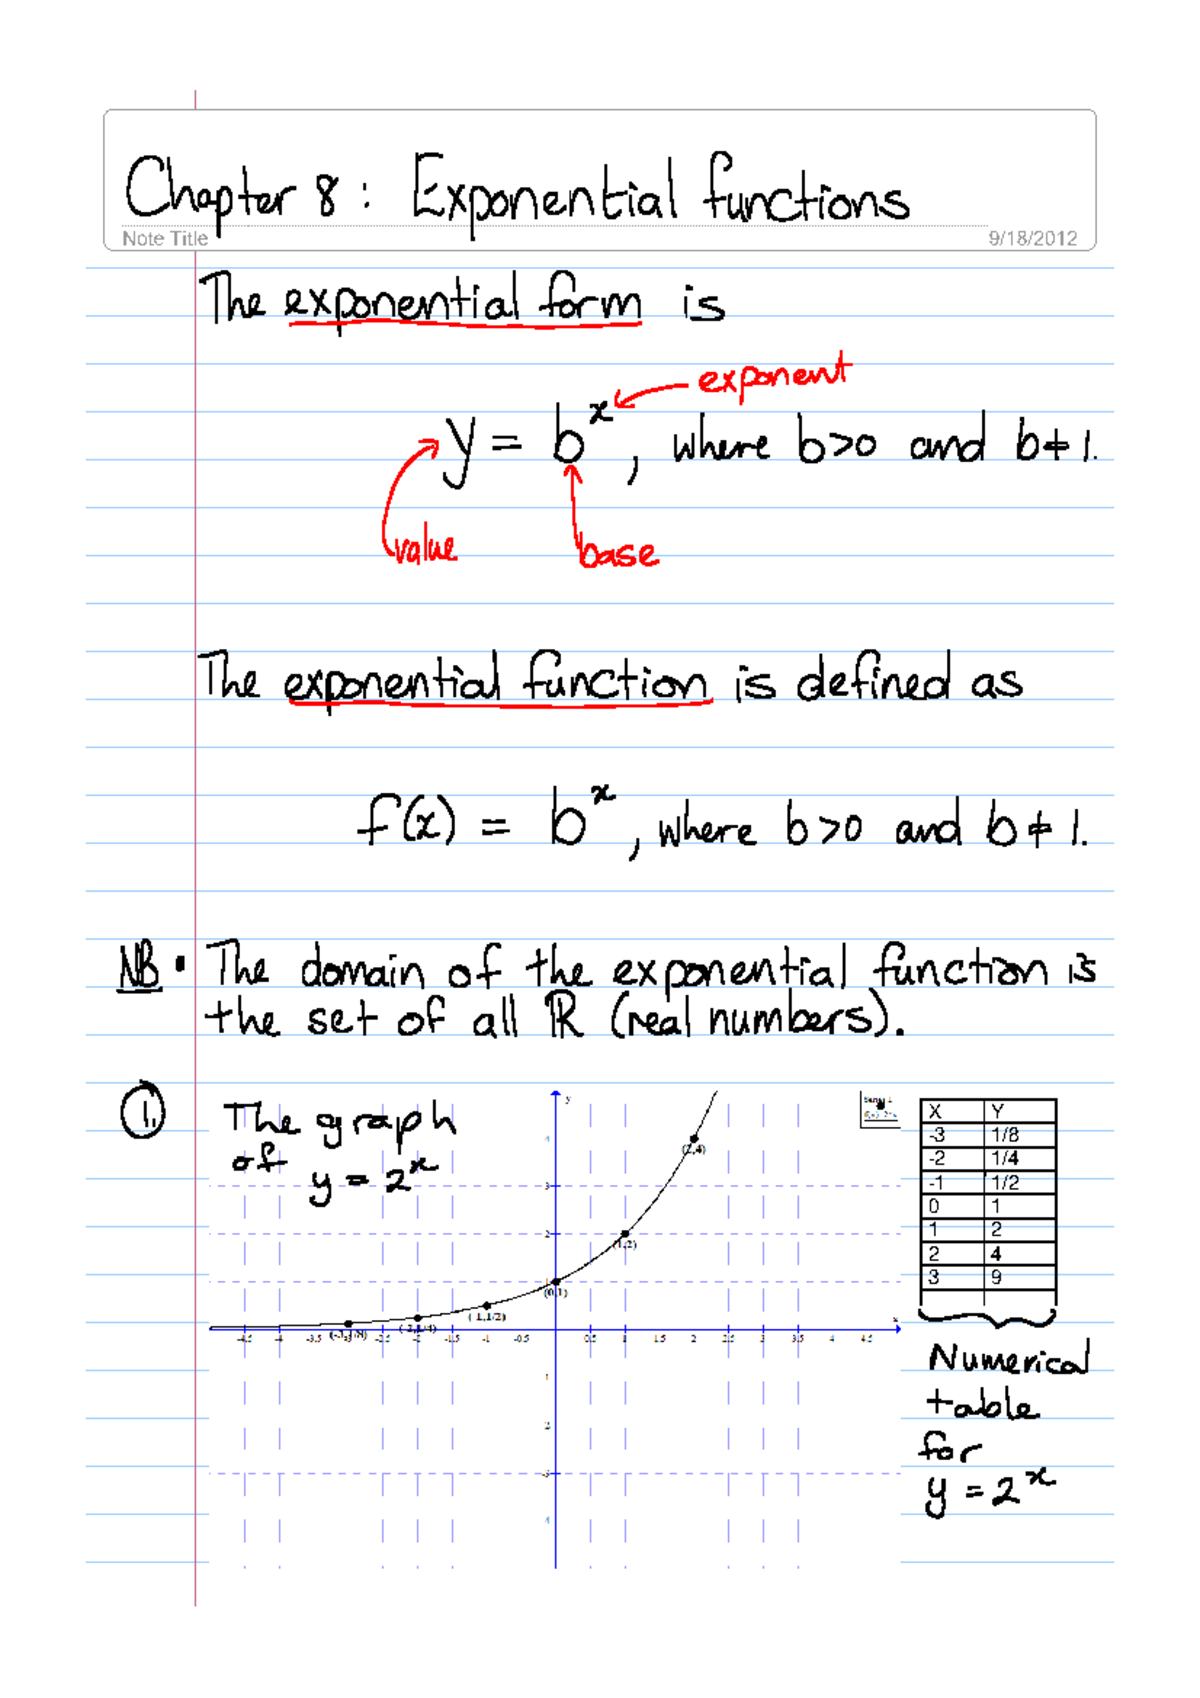 Chapter 8: Exponential functions
Note Title 9/18/2012
The exponential form is
exponent
y = b^x, where b>0 and b≠1.
value
base
The exponential function is defined as
f(x) = b^x, where b>0 and b≠1.
NB • The domain of the exponential function is
the set of all ℝ (real numbers).
1. The graph
of y = 2^x
y
4
(2,4)
3
2
(1,2)
1
(0,1)
(-1,1/2)
(-2,1/4)
(-3,1/8)
x
-4.5 -4 -3.5 -3 -2.5 -2 -1.5 -1 -0.5 0.5 1 1.5 2 2.5 3 3.5 4 4.5
-1
-2
-3
-4
X Y
-3 1/8
-2 1/4
-1 1/2
0 1
1 2
2 4
3 9
Numerical
table
for
y = 2^x